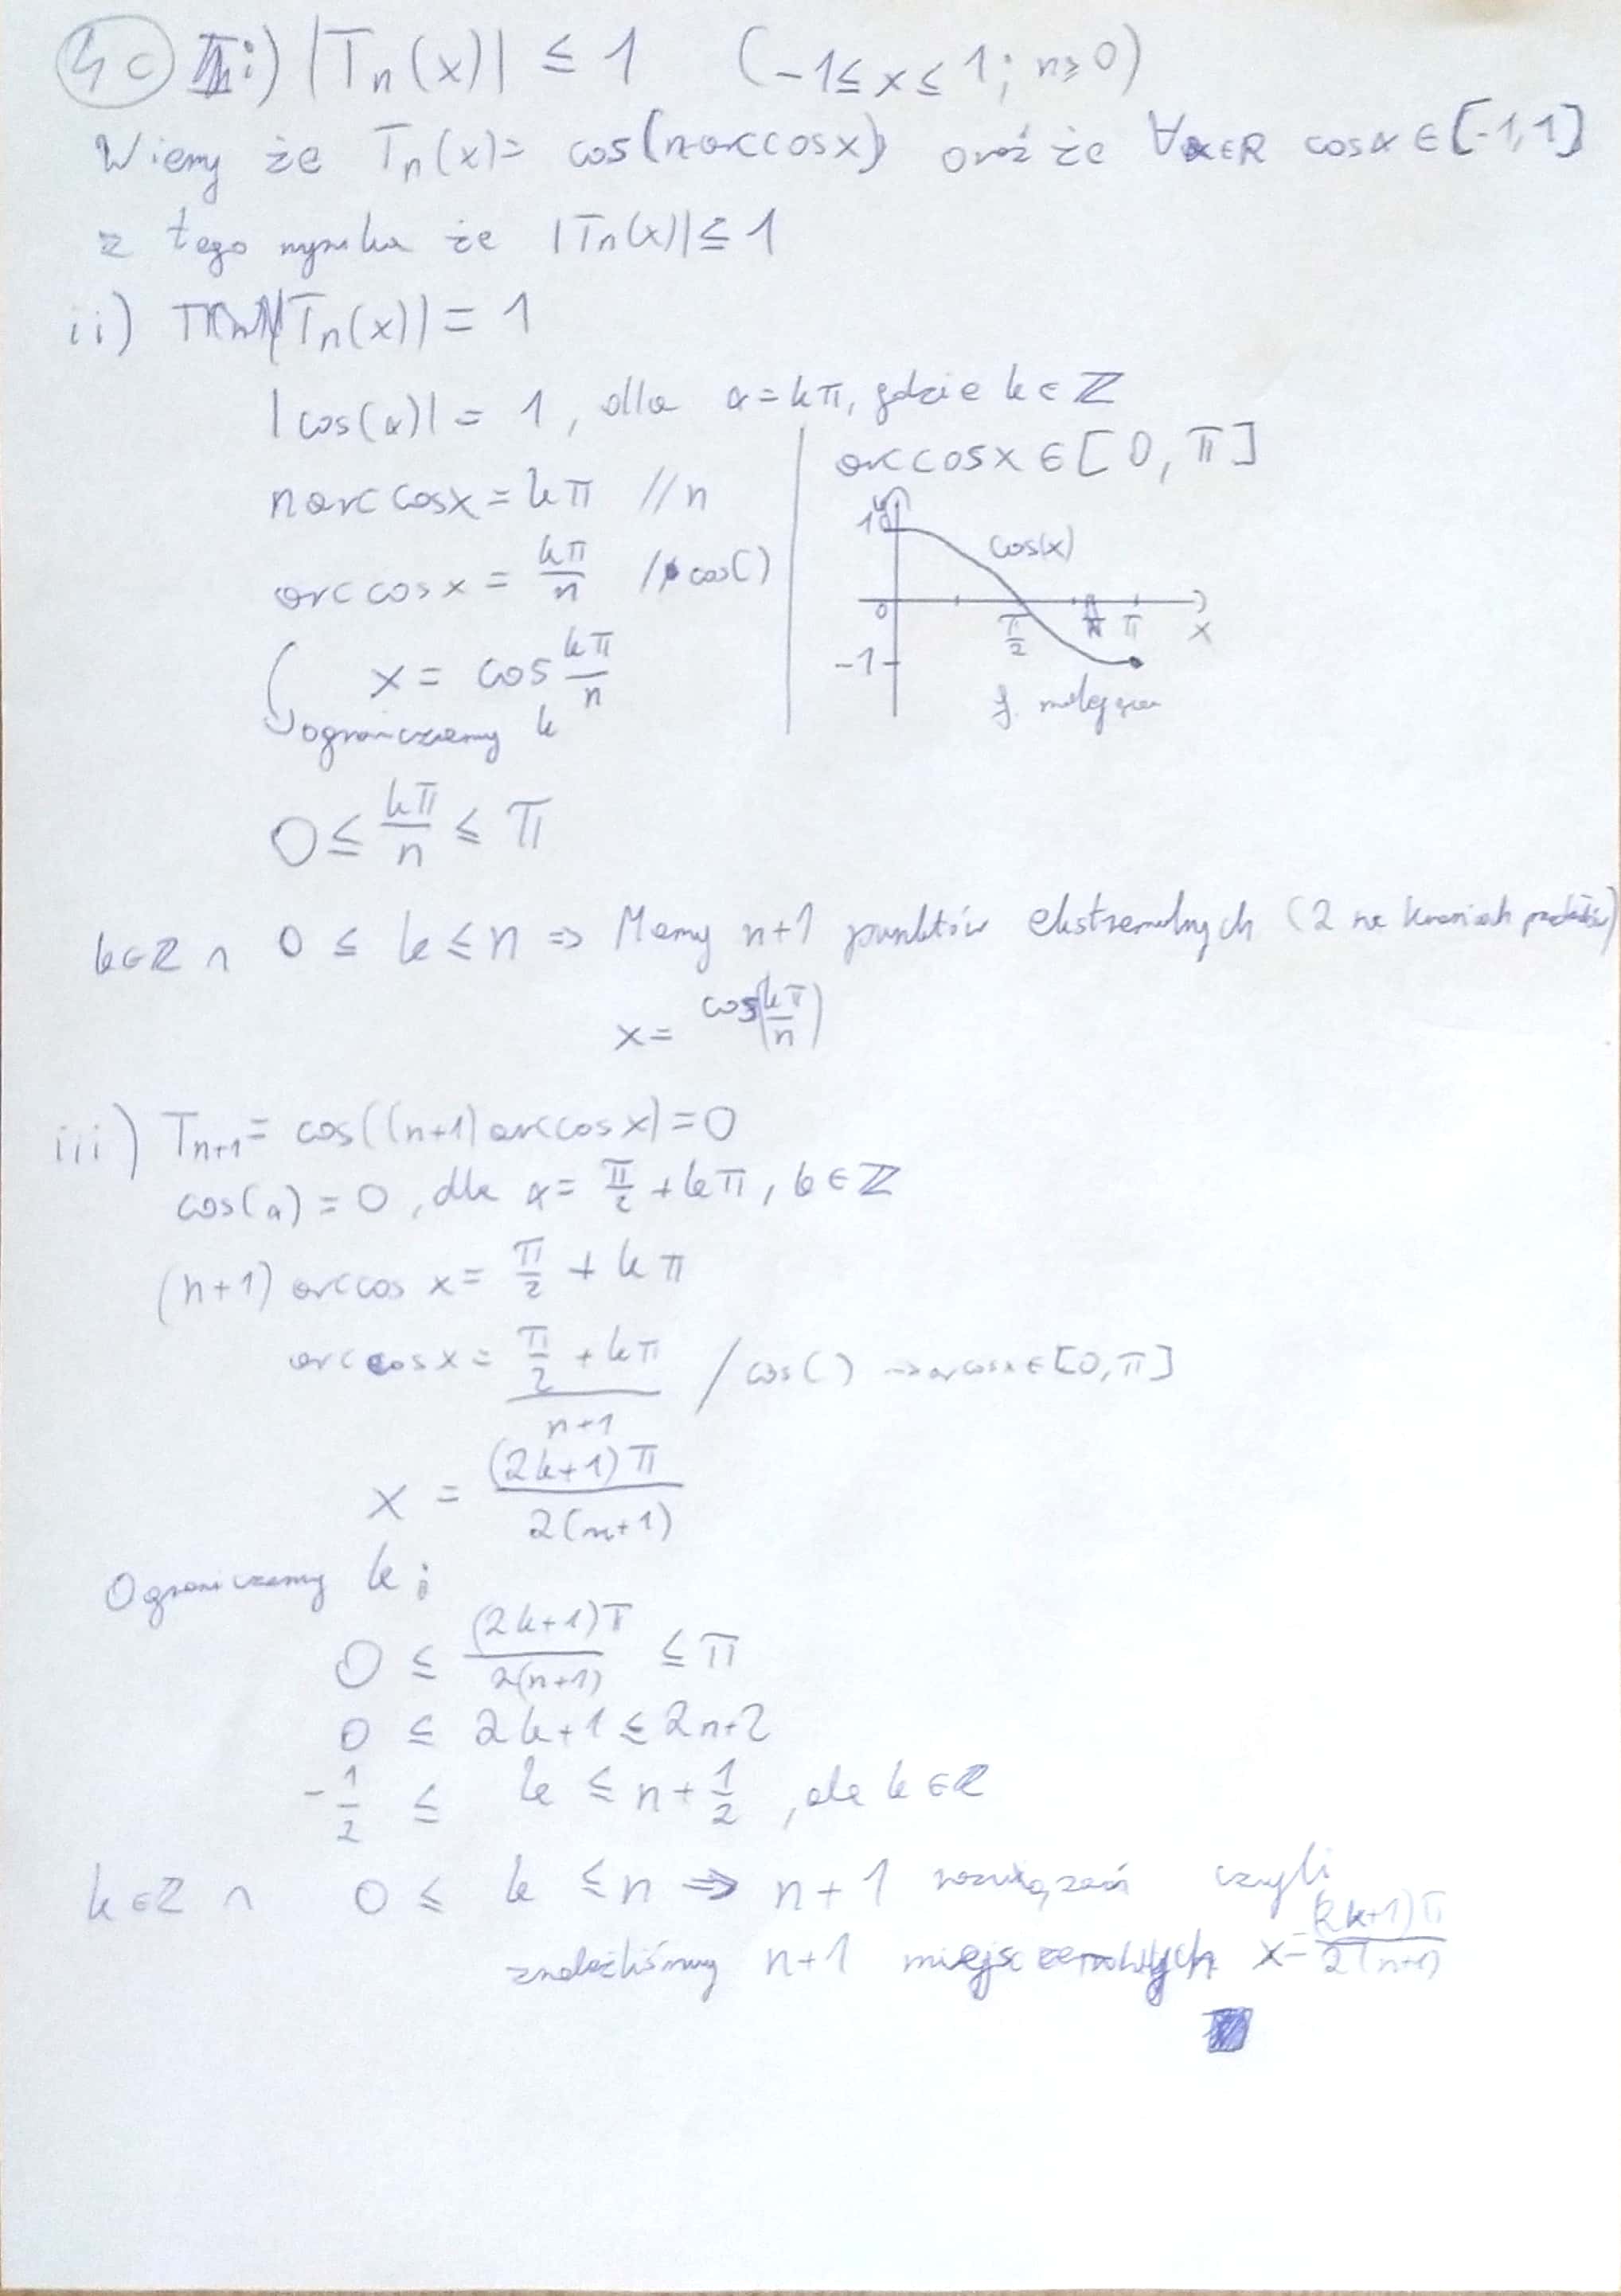 4c i) |Tn(x)| ≤ 1 (-1 ≤ x ≤ 1; n ≥ 0)
Wiemy że Tn(x) = cos(n arccosx) oraz że ∀α∈R cosα ∈ [-1,1]
z tego wynika że |Tn(x)| ≤ 1
ii) |Tn(x)| = 1
|cos(α)| = 1, dla α = kπ, gdzie k ∈ ℤ
n arccosx = kπ //n
arccosx = kπ/n / cos()
x = cos kπ/n
ograniczamy k
arccosx ∈ [0, π]
y
1
cos(x)
0 π/2 π x
-1
f. malejąca
0 ≤ kπ/n ≤ π
k∈ℤ ∩ 0 ≤ k ≤ n ⇒ Mamy n+1 punktów ekstremalnych (2 na krańcach przedziałów)
x = cos(kπ/n)
iii) Tn+1 = cos((n+1) arccosx) = 0
cos(α) = 0, dla α = π/2 + kπ, k ∈ ℤ
(n+1) arccos x = π/2 + kπ
arccosx = (π/2 + kπ)/(n+1) / cos() → arccosx ∈ [0, π]
x = (2k+1)π / 2(n+1)
Ograniczamy k:
0 ≤ (2k+1)π / 2(n+1) ≤ π
0 ≤ 2k+1 ≤ 2n+2
-1/2 ≤ k ≤ n + 1/2, ale k ∈ ℤ
k ∈ ℤ ∩ 0 ≤ k ≤ n ⇒ n+1 rozwiązań czyli
znaleźliśmy n+1 miejsc zerowych x = (2k+1)π / 2(n+1)